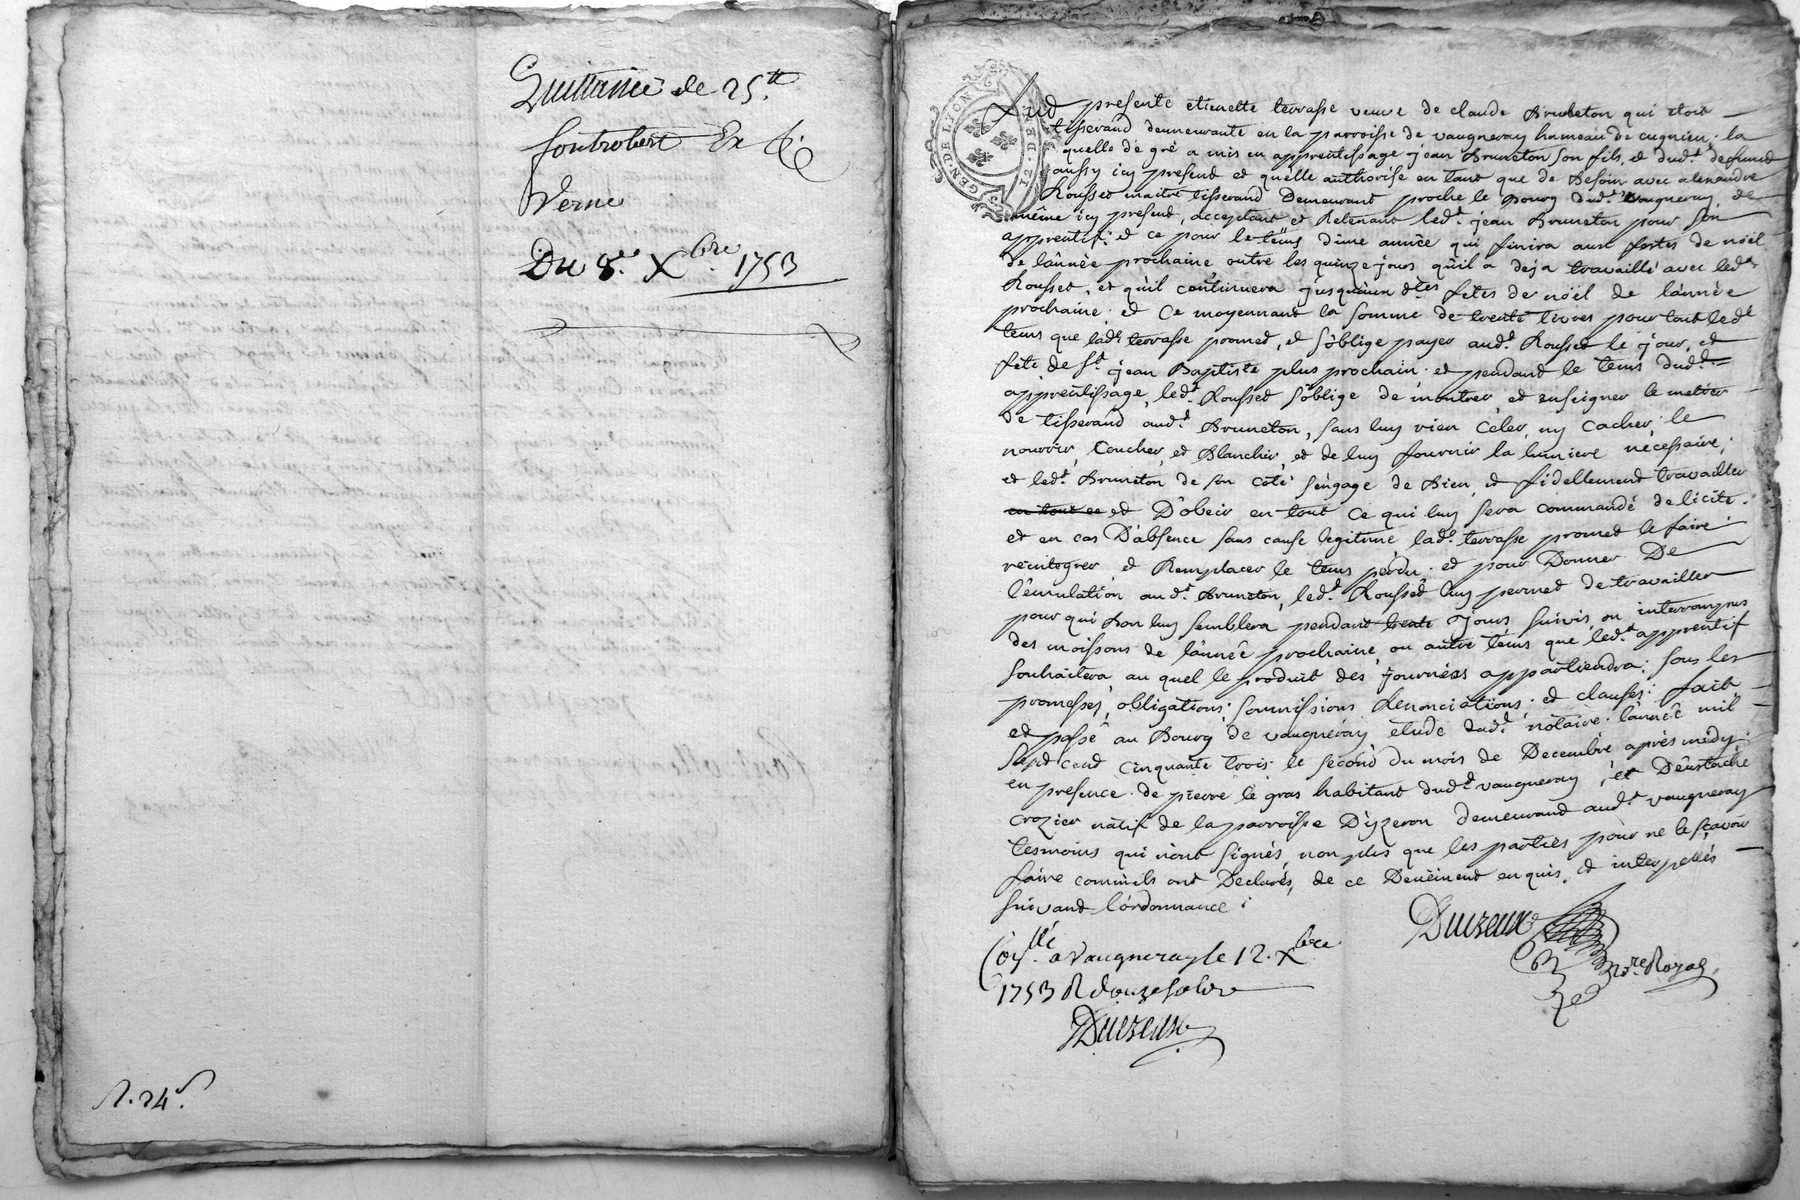 Quittance de 25.tt
fontrobert Ex
Verne
Du 8.e Xbre 1753
R. 24s.
GEN. DE LION
12. DEN.
Fut présente etienette terrasse veuve de claude Bruneton qui etoit
tisserand demeurante en la parroisse de vaugneray hameau de cugnieu; la
quelle de gré a mis en apprentissage jean Bruneton son fils, et dudt defunct
aussy icy present et quelle authorise en tant que de Besoin avec alexandre
Rousset maitre tisserand Demeurant proche le Bourg dudt vaugneray, de
même icy présent, acceptant et Retenant ledt jean Bruneton pour son
apprentif; et ce pour le tems d'une année qui finira aux festes de noël
de l'année prochaine outre les quinze jours qu'il a deja travaillé avec ledt
Rousset, et qu'il continuera jusqu'aux dtes fêtes de noël de l'année
prochaine; et ce moyennant la somme de trente livres pour tout ledt
tems que ladte terrasse promet, et s'oblige payer audt Rousset le jour, et
fête de St jean Baptiste plus prochain; et pendant le tems dudt
apprentissage, ledt Rousset s'oblige de montrer et enseigner le metier
de tisserand audt Bruneton, sans luy rien Céler, ny Cacher, le
nourrir, Coucher, et Blanchir, et de luy fournir la lumiere nécessaire;
et ledt Bruneton de son côté s'engage de Bien, et fidellement travailler
en tout ce et D'obeir en tout ce qui luy sera commandé de licite;
et en cas D'absence sans cause legitime ladte terrasse promet le faire
reintegrer et Remplacer le tems perdu; et pour Donner De
l'emulation audt Bruneton, ledt Rousset luy permet de travailler
pour qui Bon luy semblera pendant trente jours suivis, ou interrompus
des moissons de l'année prochaine, ou autre tems que ledt apprentif
souhaitera, au quel le produit des journées appartiendra; sous les
promesses, obligations; soumissions, Renonciations; et clauses; fait
et passé au Bourg de vaugneray étude dudt notaire; l'année mil
sept cent cinquante trois; le second du mois de Decembre après midy;
en presence de pierre le gras habitant dudt vaugneray, et D'eustache
crozier natif de la parroisse D'yzeron demeurant audt vaugneray
tesmoins qui n'ont signés, non plus que les parties pour ne le sçavoir
faire comm'ils ont Declarés, de ce Deuëment enquis, et interpellés
suivant l'ordonnance;
Duizeux
Nre Royal
Collé a Vaugneray le 12. Xbre
1753 R douze sols
Duizeux